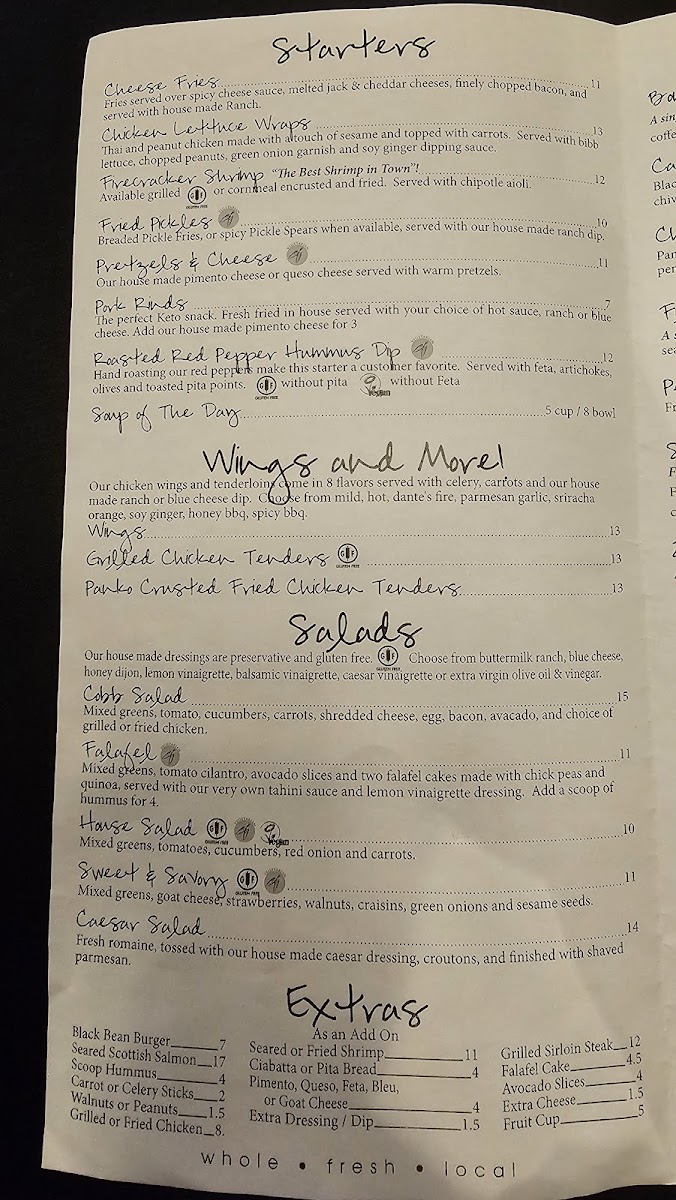 Starters
Cheese Fries 11
Fries served over spicy cheese sauce, melted jack & cheddar cheeses, finely chopped bacon, and
served with house made Ranch.
Chicken Lettuce Wraps 13
Thai and peanut chicken made with a touch of sesame and topped with carrots. Served with bibb
lettuce, chopped peanuts, green onion garnish and soy ginger dipping sauce.
Firecracker Shrimp "The Best Shrimp in Town"! 12
Available grilled GF GLUTEN FREE or cornmeal encrusted and fried. Served with chipotle aioli.
Fried Pickles 10
Breaded Pickle Fries, or spicy Pickle Spears when available, served with our house made ranch dip.
Pretzels & Cheese 11
Our house made pimento cheese or queso cheese served with warm pretzels.
Pork Rinds 7
The perfect Keto snack. Fresh fried in house served with your choice of hot sauce, ranch or blue
cheese. Add our house made pimento cheese for 3
Roasted Red Pepper Hummus Dip 12
Hand roasting our red peppers make this starter a customer favorite. Served with feta, artichokes,
olives and toasted pita points. GF GLUTEN FREE without pita Vegan without Feta
Soup of The Day 5 cup / 8 bowl
Wings and More!
Our chicken wings and tenderloins come in 8 flavors served with celery, carrots and our house
made ranch or blue cheese dip. Choose from mild, hot, dante's fire, parmesan garlic, sriracha
orange, soy ginger, honey bbq, spicy bbq.
Wings 13
Grilled Chicken Tenders GF GLUTEN FREE 13
Panko Crusted Fried Chicken Tenders 13
Salads
Our house made dressings are preservative and gluten free. GF GLUTEN FREE Choose from buttermilk ranch, blue cheese,
honey dijon, lemon vinaigrette, balsamic vinaigrette, caesar vinaigrette or extra virgin olive oil & vinegar.
Cobb Salad 15
Mixed greens, tomato, cucumbers, carrots, shredded cheese, egg, bacon, avacado, and choice of
grilled or fried chicken.
Falafel 11
Mixed greens, tomato cilantro, avocado slices and two falafel cakes made with chick peas and
quinoa, served with our very own tahini sauce and lemon vinaigrette dressing. Add a scoop of
hummus for 4.
House Salad GF GLUTEN FREE Vegan 10
Mixed greens, tomatoes, cucumbers, red onion and carrots.
Sweet & Savory GF GLUTEN FREE 11
Mixed greens, goat cheese, strawberries, walnuts, craisins, green onions and sesame seeds.
Caesar Salad 14
Fresh romaine, tossed with our house made caesar dressing, croutons, and finished with shaved
parmesan.
Extras
As an Add On
Black Bean Burger 7
Seared Scottish Salmon 17
Scoop Hummus 4
Carrot or Celery Sticks 2
Walnuts or Peanuts 1.5
Grilled or Fried Chicken 8.
Seared or Fried Shrimp 11
Ciabatta or Pita Bread 4
Pimento, Queso, Feta, Bleu,
or Goat Cheese 4
Extra Dressing / Dip 1.5
Grilled Sirloin Steak 12
Falafel Cake 4.5
Avocado Slices 4
Extra Cheese 1.5
Fruit Cup 5
whole • fresh • local